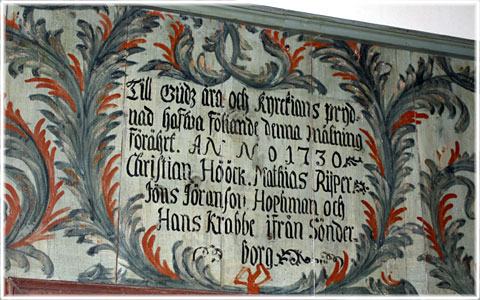 Till Gudz ära och Kyrckians pryd-
nad hafva följande denna målning
Föräfrt. ANNO 1730.
Christian Höök. Mathias Rijper.
Jöns Jöranson Hophman och
Hans Krabbe ifrån Sönder-
borg.